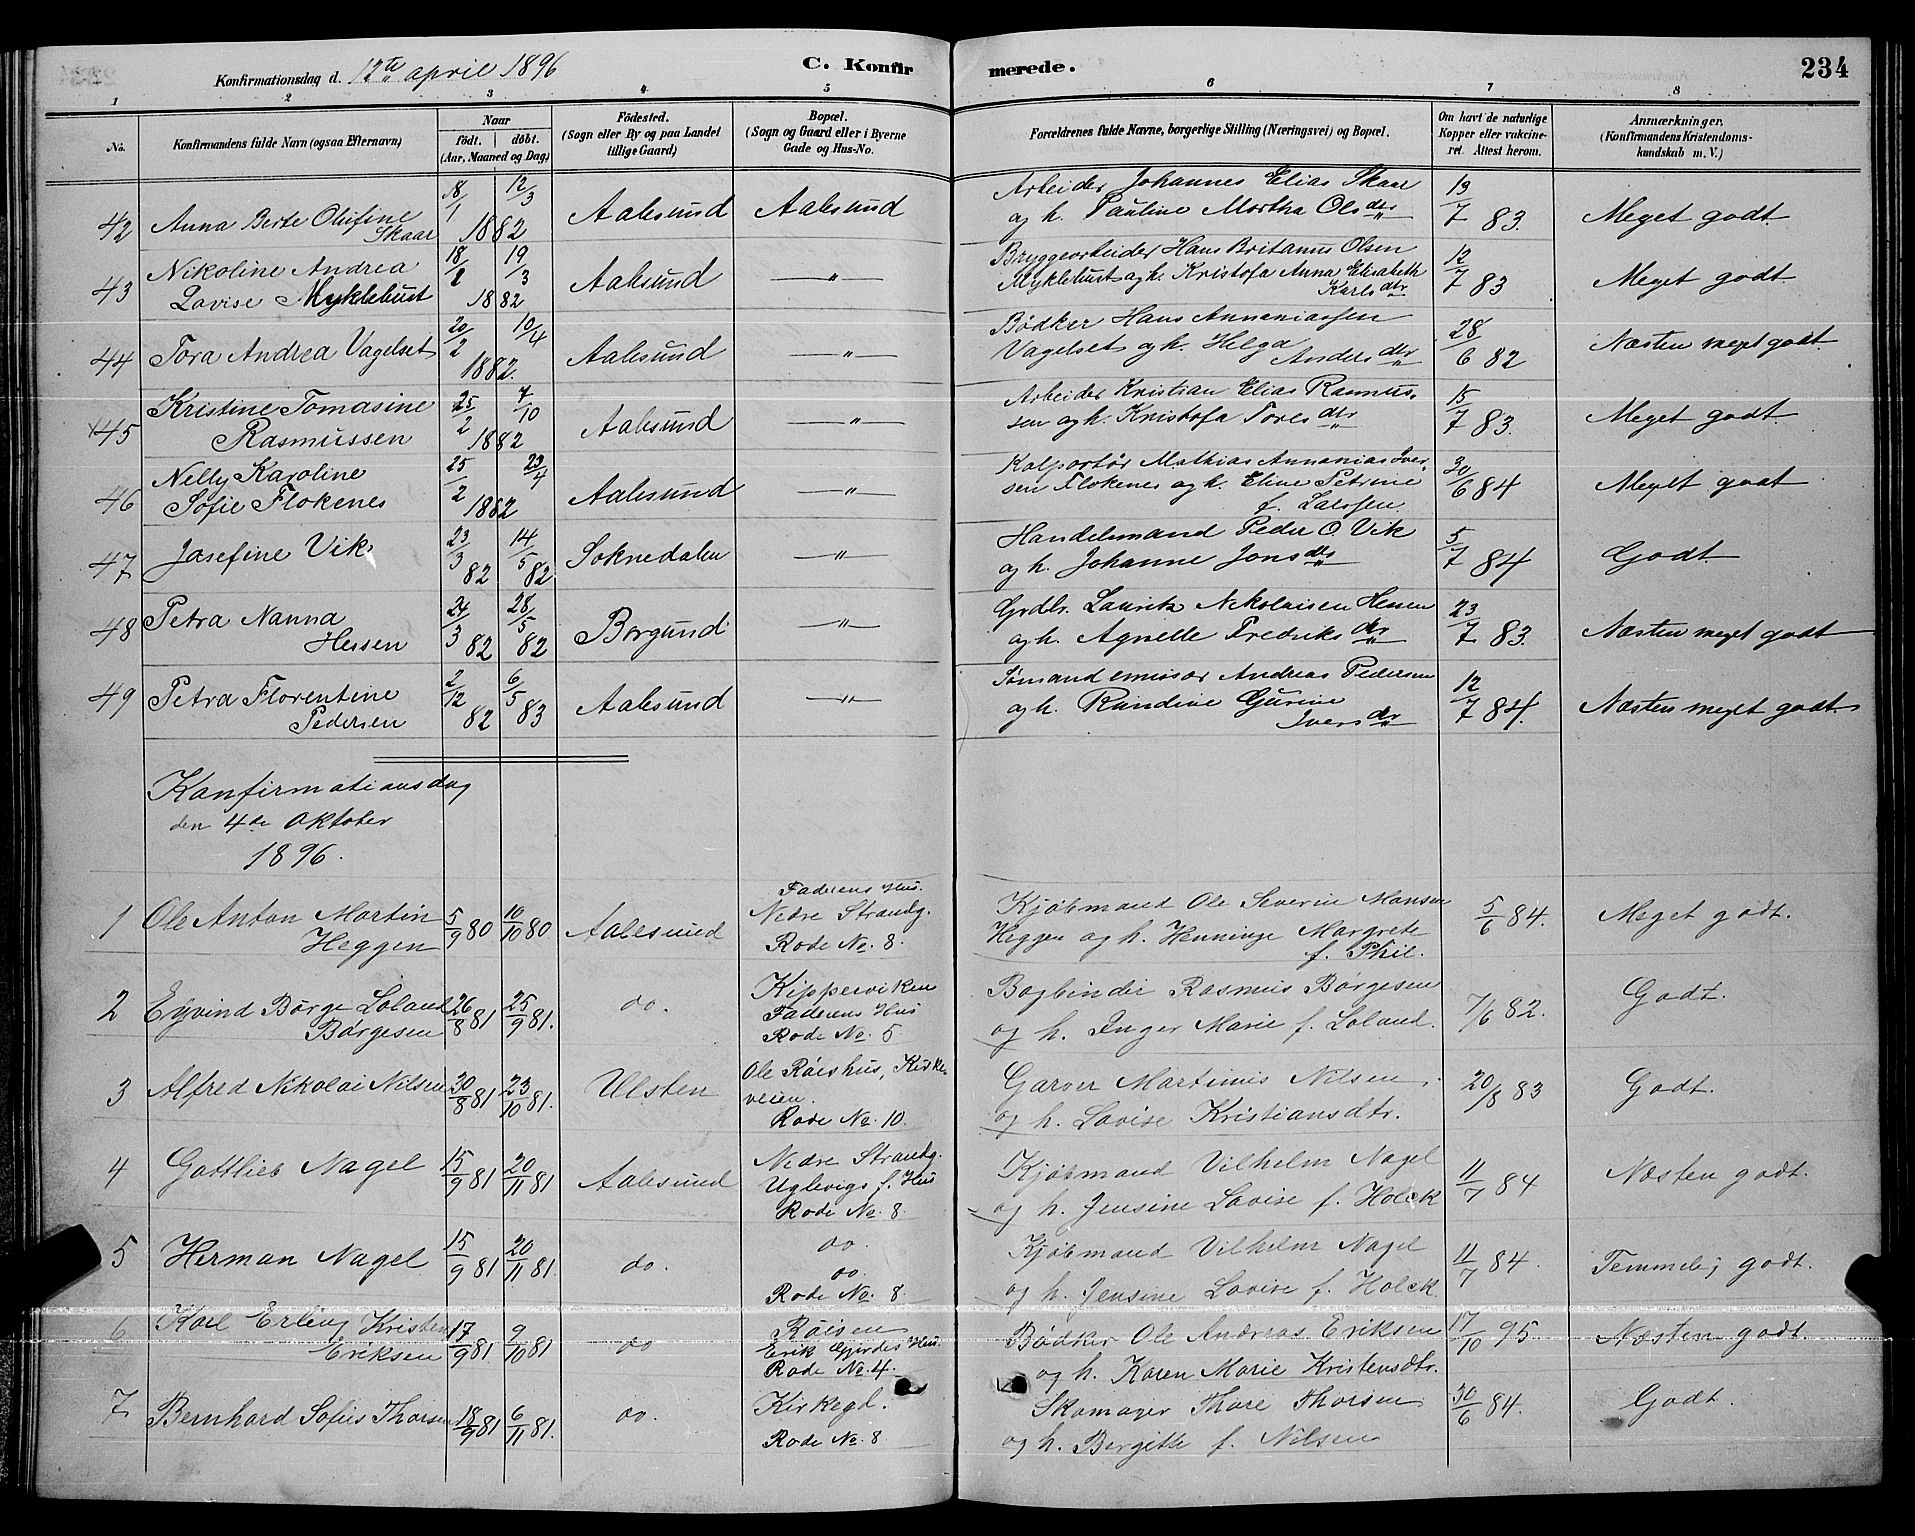 Konfirmationsdag d. 12te april 1896
C. Konfirmerede.
234
1 2 3 4 5 6 7 8
No.
Konfirmandens fulde Navn (ogsaa Efternavn)
Naar
født. døbt.
(Aar, Maaned og Dag)
Fødested.
(Sogn eller By og paa Landet
tillige Gaard)
Bopæl.
(Sogn og Gaard eller i Byerne
Gade og Hus-No.
Forældrenes fulde Navne, borgerlige Stilling (Næringsvei) og Bopæl.
Om havt de naturlige
Kopper eller vakcine-
ret. Attest herom.
Anmærkninger.
(Konfirmandens Kristendoms-
kundskab m. V.)
42 Anna Berte Olufine Skaar 18/1 12/3 1882 Aalesund Aalesund
Arbeider Johannes Elias Skaar
og h. Pauline Martha Olsdtr 19/7 83. Meget godt.
43 Nikoline Andrea
Lovise Myklebust 18/1 19/3 1882 Aalesund —〃—
Bryggearbeider Hans Britanus Olsen
Myklebust og h. Kristofa Anna Elisabeth
Karlsdtr 12/7 83 Meget godt.
44 Tora Andrea Vagelset 20/2 10/4 1882. Aalesund —〃—
Bødker Hans Annaniassen
Vagelset og h. Helga
Andersdtr 28/6 82 Næsten meget godt.
45 Kristine Tomasine
Rasmussen 25/2 7/10 1882 Aalesund —〃—
Arbeider Kristian Elias Rasmus-
sen og h. Kristofa Toresdtr 15/7 83. Meget godt.
46 Nelly Karoline
Sofie Flokenes 25/2 23/4 1882 Aalesund —〃—
Kolportør Mathias Annanias Iver-
sen Flokenes og h. Eline Petrine
f. Larssen. 30/6 84 Meget godt
47 Josefine Vik 23/3 82 14/5 82 Soknedalen —〃—
Handelsmand Peder O. Vik
og h. Johanne Jonsdtr 5/7 84 Godt.
48 Petra Nanna
Hessen 24/3 82 28/5 82 Borgund —〃—
Grdbr. Laurits Nikolaisen Hessen
og h. Agnette Fredriksdtr 23/7 83. Næsten meget godt
49 Petra Florentine
Pedersen 2/12 82 6/5 83 Aalesund —〃—
Sømand emissær Andreas Pedersen
og h. Randine Gurine
Iversdtr 12/7 84. Næsten meget godt.
Konfirmationsdag
den 4de Oktober
1896.
1 Ole Anton Martin
Heggen 5/9 80 10/10 80. Aalesund
Faderens Hus.
Nedre Strandg.
Rode No. 8.
Kjøbmand Ole Severin Hansen
Heggen og h. Henninge Margrete
f. Phil. 5/6 84. Meget godt.
2 Eyvind Børge Loland
Børgesen 26/8 81 25/9 81. do.
Kipperviken
Faderens Hus
Rode No. 5
Bogbinder Rasmus Børgesen
og h. Inger Marie f. Loland. 7/6 82. Godt.
3 Alfred Nikolai Nilsen 30/8 81 23/10 81. Ulsten
Ole Røishus, Kirke-
veien.
Rode No. 10.
Garver Martinus Nilsen
og h. Lovise Kristiansdtr. 20/8 83 Godt.
4 Gottlieb Nagel 15/9 81 20/11 81 Aalesund
Nedre Strandg.
Uglevigs f. Hus
Rode No. 8
Kjøbmand Vilhelm Nagel
og h. Jensine Lovise f. Holck 11/7 84 Næsten godt.
5 Herman Nagel 15/9 81 20/11 81. do.
do.
do.
Rode No. 8
Kjøbmand Vilhelm Nagel
og h. Jensine Lovise f. Holck 11/7 84. Temmelig godt.
6 Karl Erling Kristen
Eriksen 17/9 81 9/10 81 do
Røisen
Erik Gjerdes Hus.
Rode No. 4.
Bødker Ole Andreas Eriksen
og h. Karen Marie Kristensdtr. 17/10 95 Næsten godt
7 Bernhard Sofus Thorsen 18/9 81 6/11 81. do.
Kirkegd.
Rode No. 8
Skomager Thore Thorsen
og h. Bergitte f. Nilsen 30/6 84. Godt.